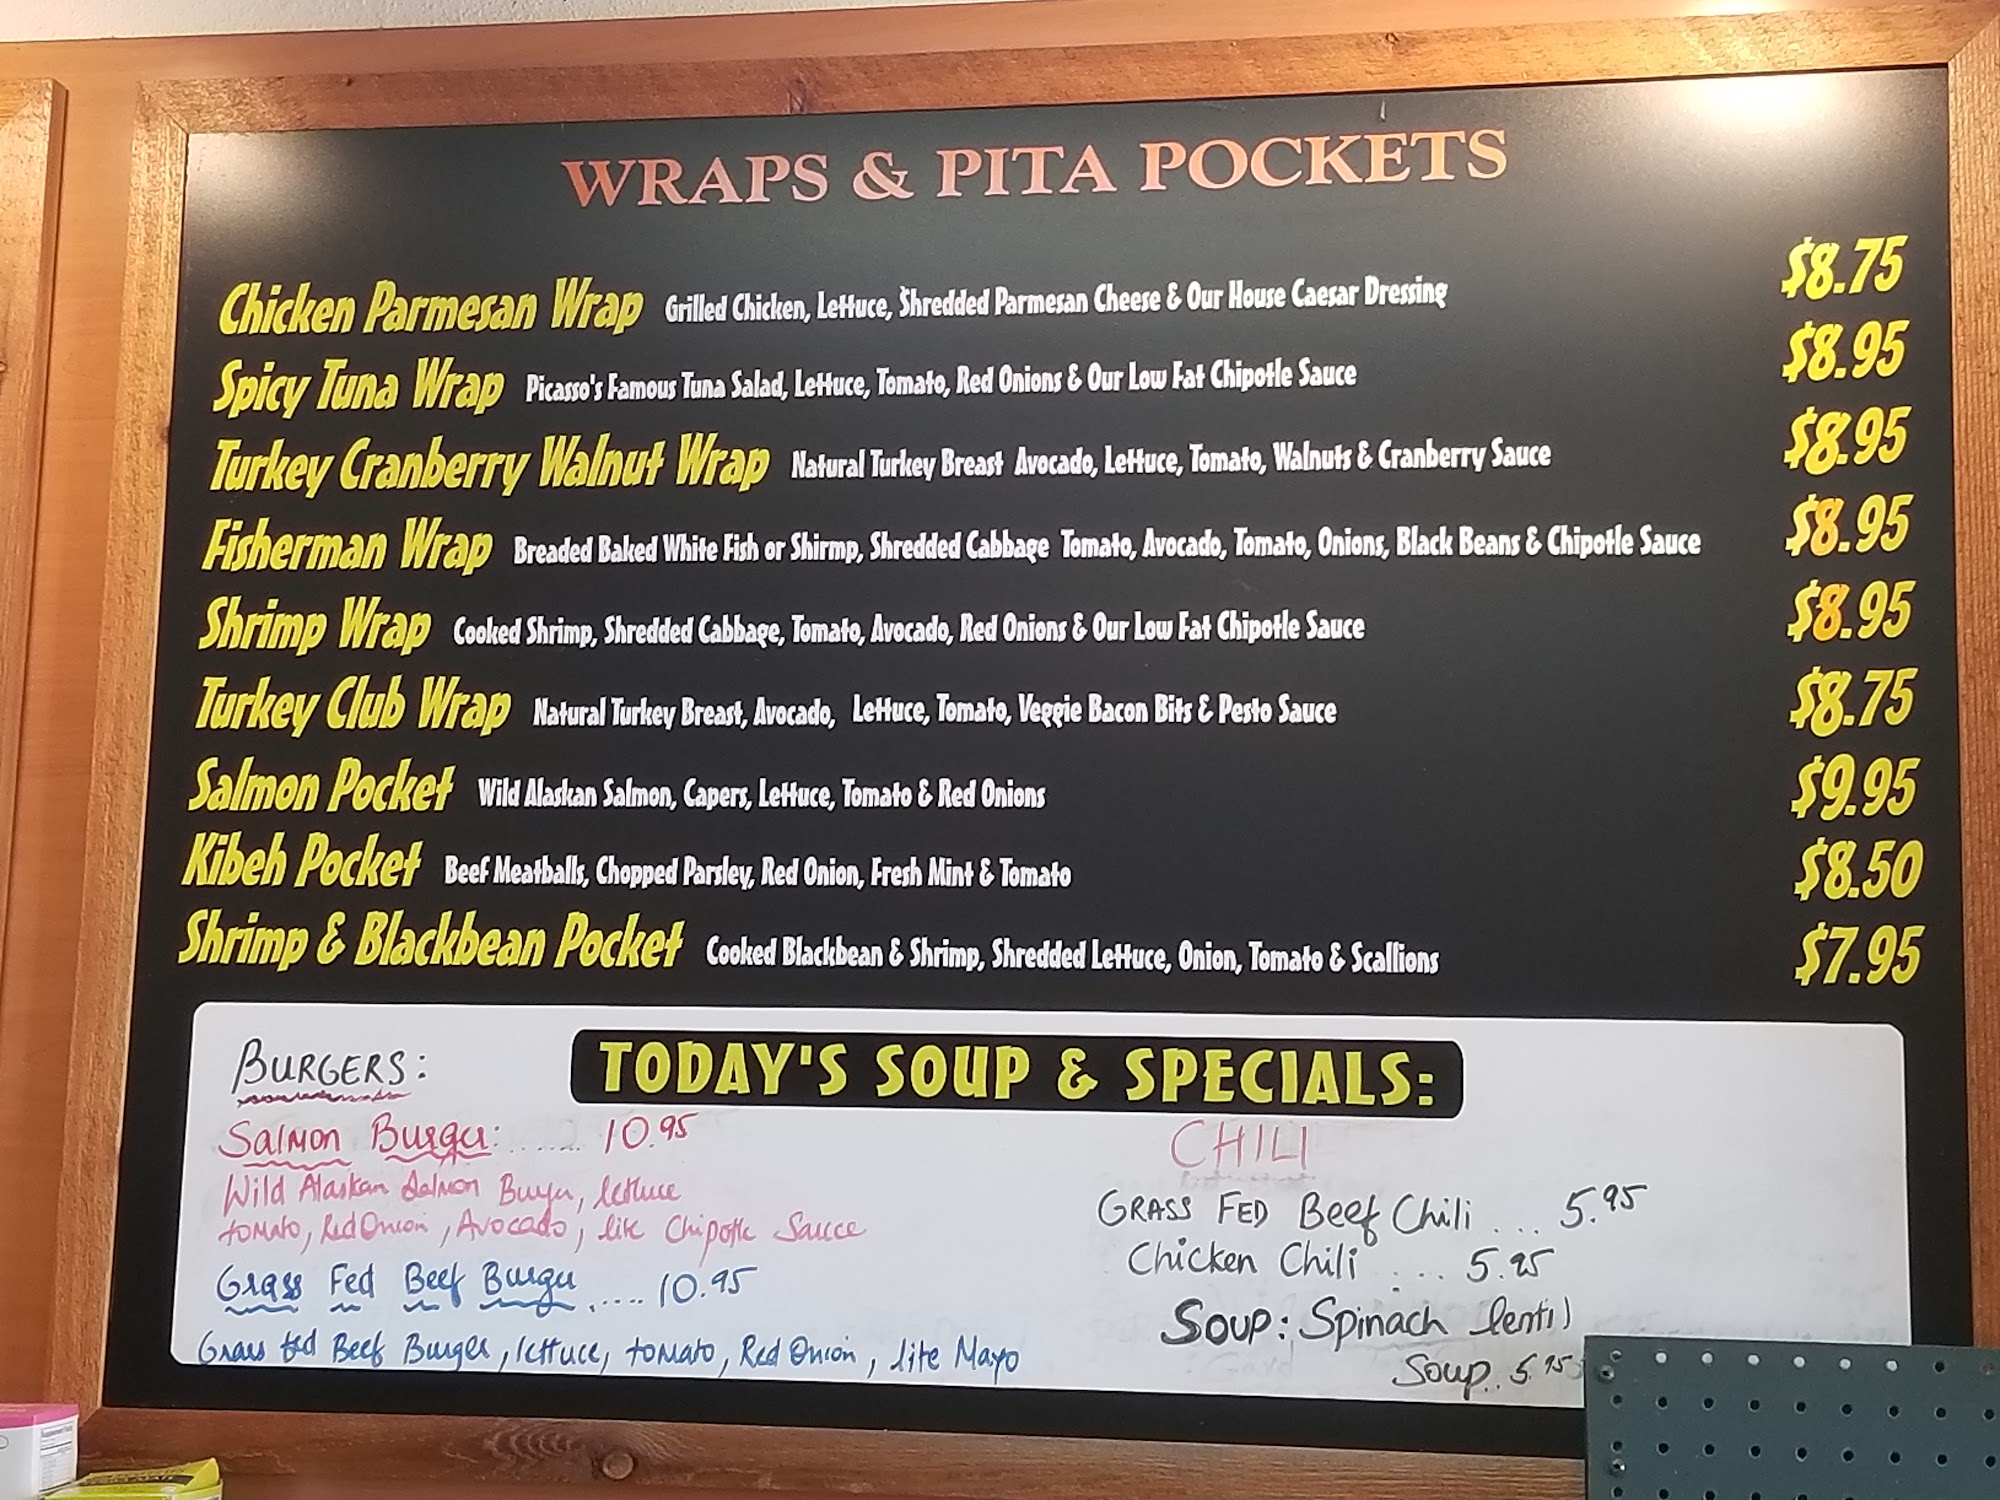 WRAPS & PITA POCKETS
Chicken Parmesan Wrap Grilled Chicken, Lettuce, Shredded Parmesan Cheese & Our House Caesar Dressing $8.75
Spicy Tuna Wrap Picasso's Famous Tuna Salad, Lettuce, Tomato, Red Onions & Our Low Fat Chipotle Sauce $8.95
Turkey Cranberry Walnut Wrap Natural Turkey Breast Avocado, Lettuce, Tomato, Walnuts & Cranberry Sauce $8.95
Fisherman Wrap Breaded Baked White Fish or Shirmp, Shredded Cabbage Tomato, Avocado, Tomato, Onions, Black Beans & Chipotle Sauce $8.95
Shrimp Wrap Cooked Shrimp, Shredded Cabbage, Tomato, Avocado, Red Onions & Our Low Fat Chipotle Sauce $8.95
Turkey Club Wrap Natural Turkey Breast, Avocado, Lettuce, Tomato, Veggie Bacon Bits & Pesto Sauce $8.75
Salmon Pocket Wild Alaskan Salmon, Capers, Lettuce, Tomato & Red Onions $9.95
Kibeh Pocket Beef Meatballs, Chopped Parsley, Red Onion, Fresh Mint & Tomato $8.50
Shrimp & Blackbean Pocket Cooked Blackbean & Shrimp, Shredded Lettuce, Onion, Tomato & Scallions $7.95
TODAY'S SOUP & SPECIALS:
BURGERS:
Salmon Burger: ...... 10.95
Wild Alaskan Salmon Burger, lettuce
tomato, Red Onion, Avocado, lite Chipotle Sauce
Grass Fed Beef Burger ..... 10.95
Grass fed Beef Burger, lettuce, tomato, Red Onion, lite Mayo
CHILI
GRASS FED Beef Chili ... 5.95
Chicken Chili .... 5.95
SOUP: Spinach lentil
Soup.. 5.95